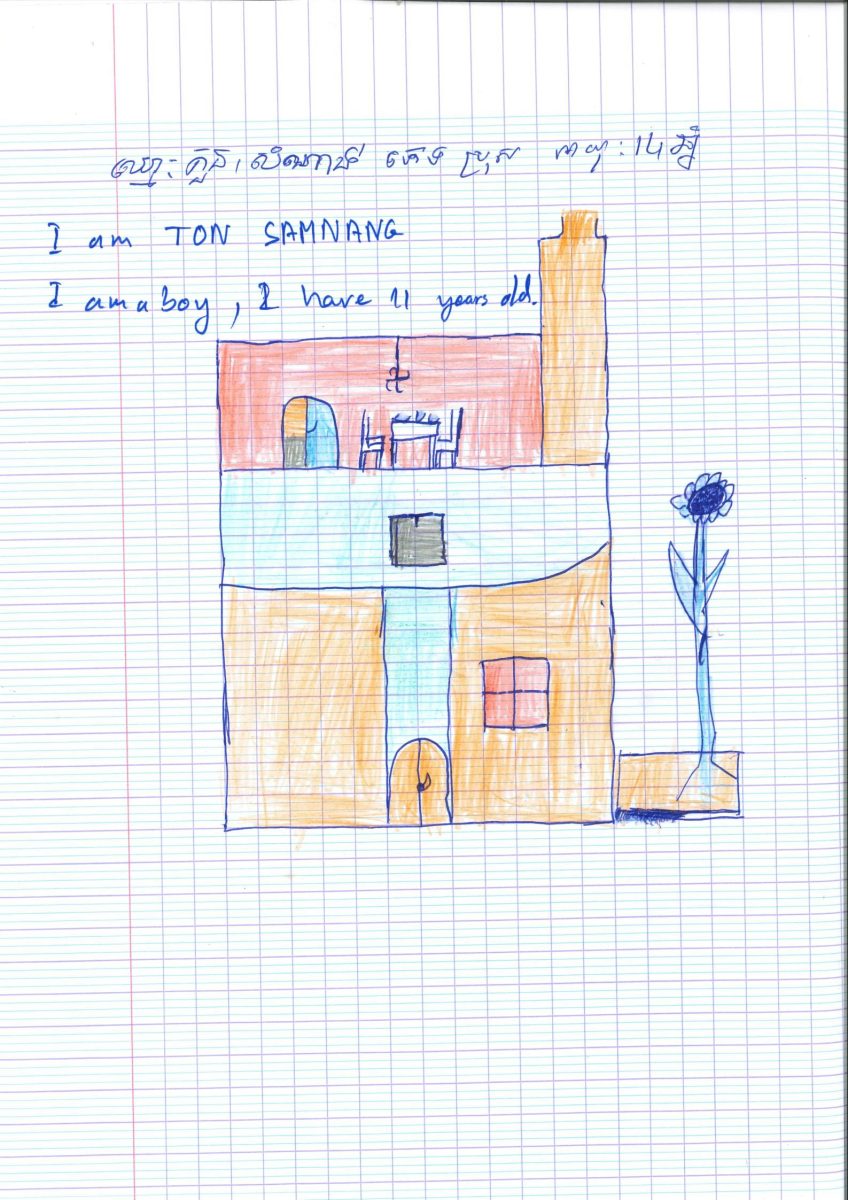 ឈ្មោះ: សំណាង ភេទ ប្រុស អាយុ: 14 ឆ្នាំ
I am TON SAMNANG
I am a boy, I have 11 years old.